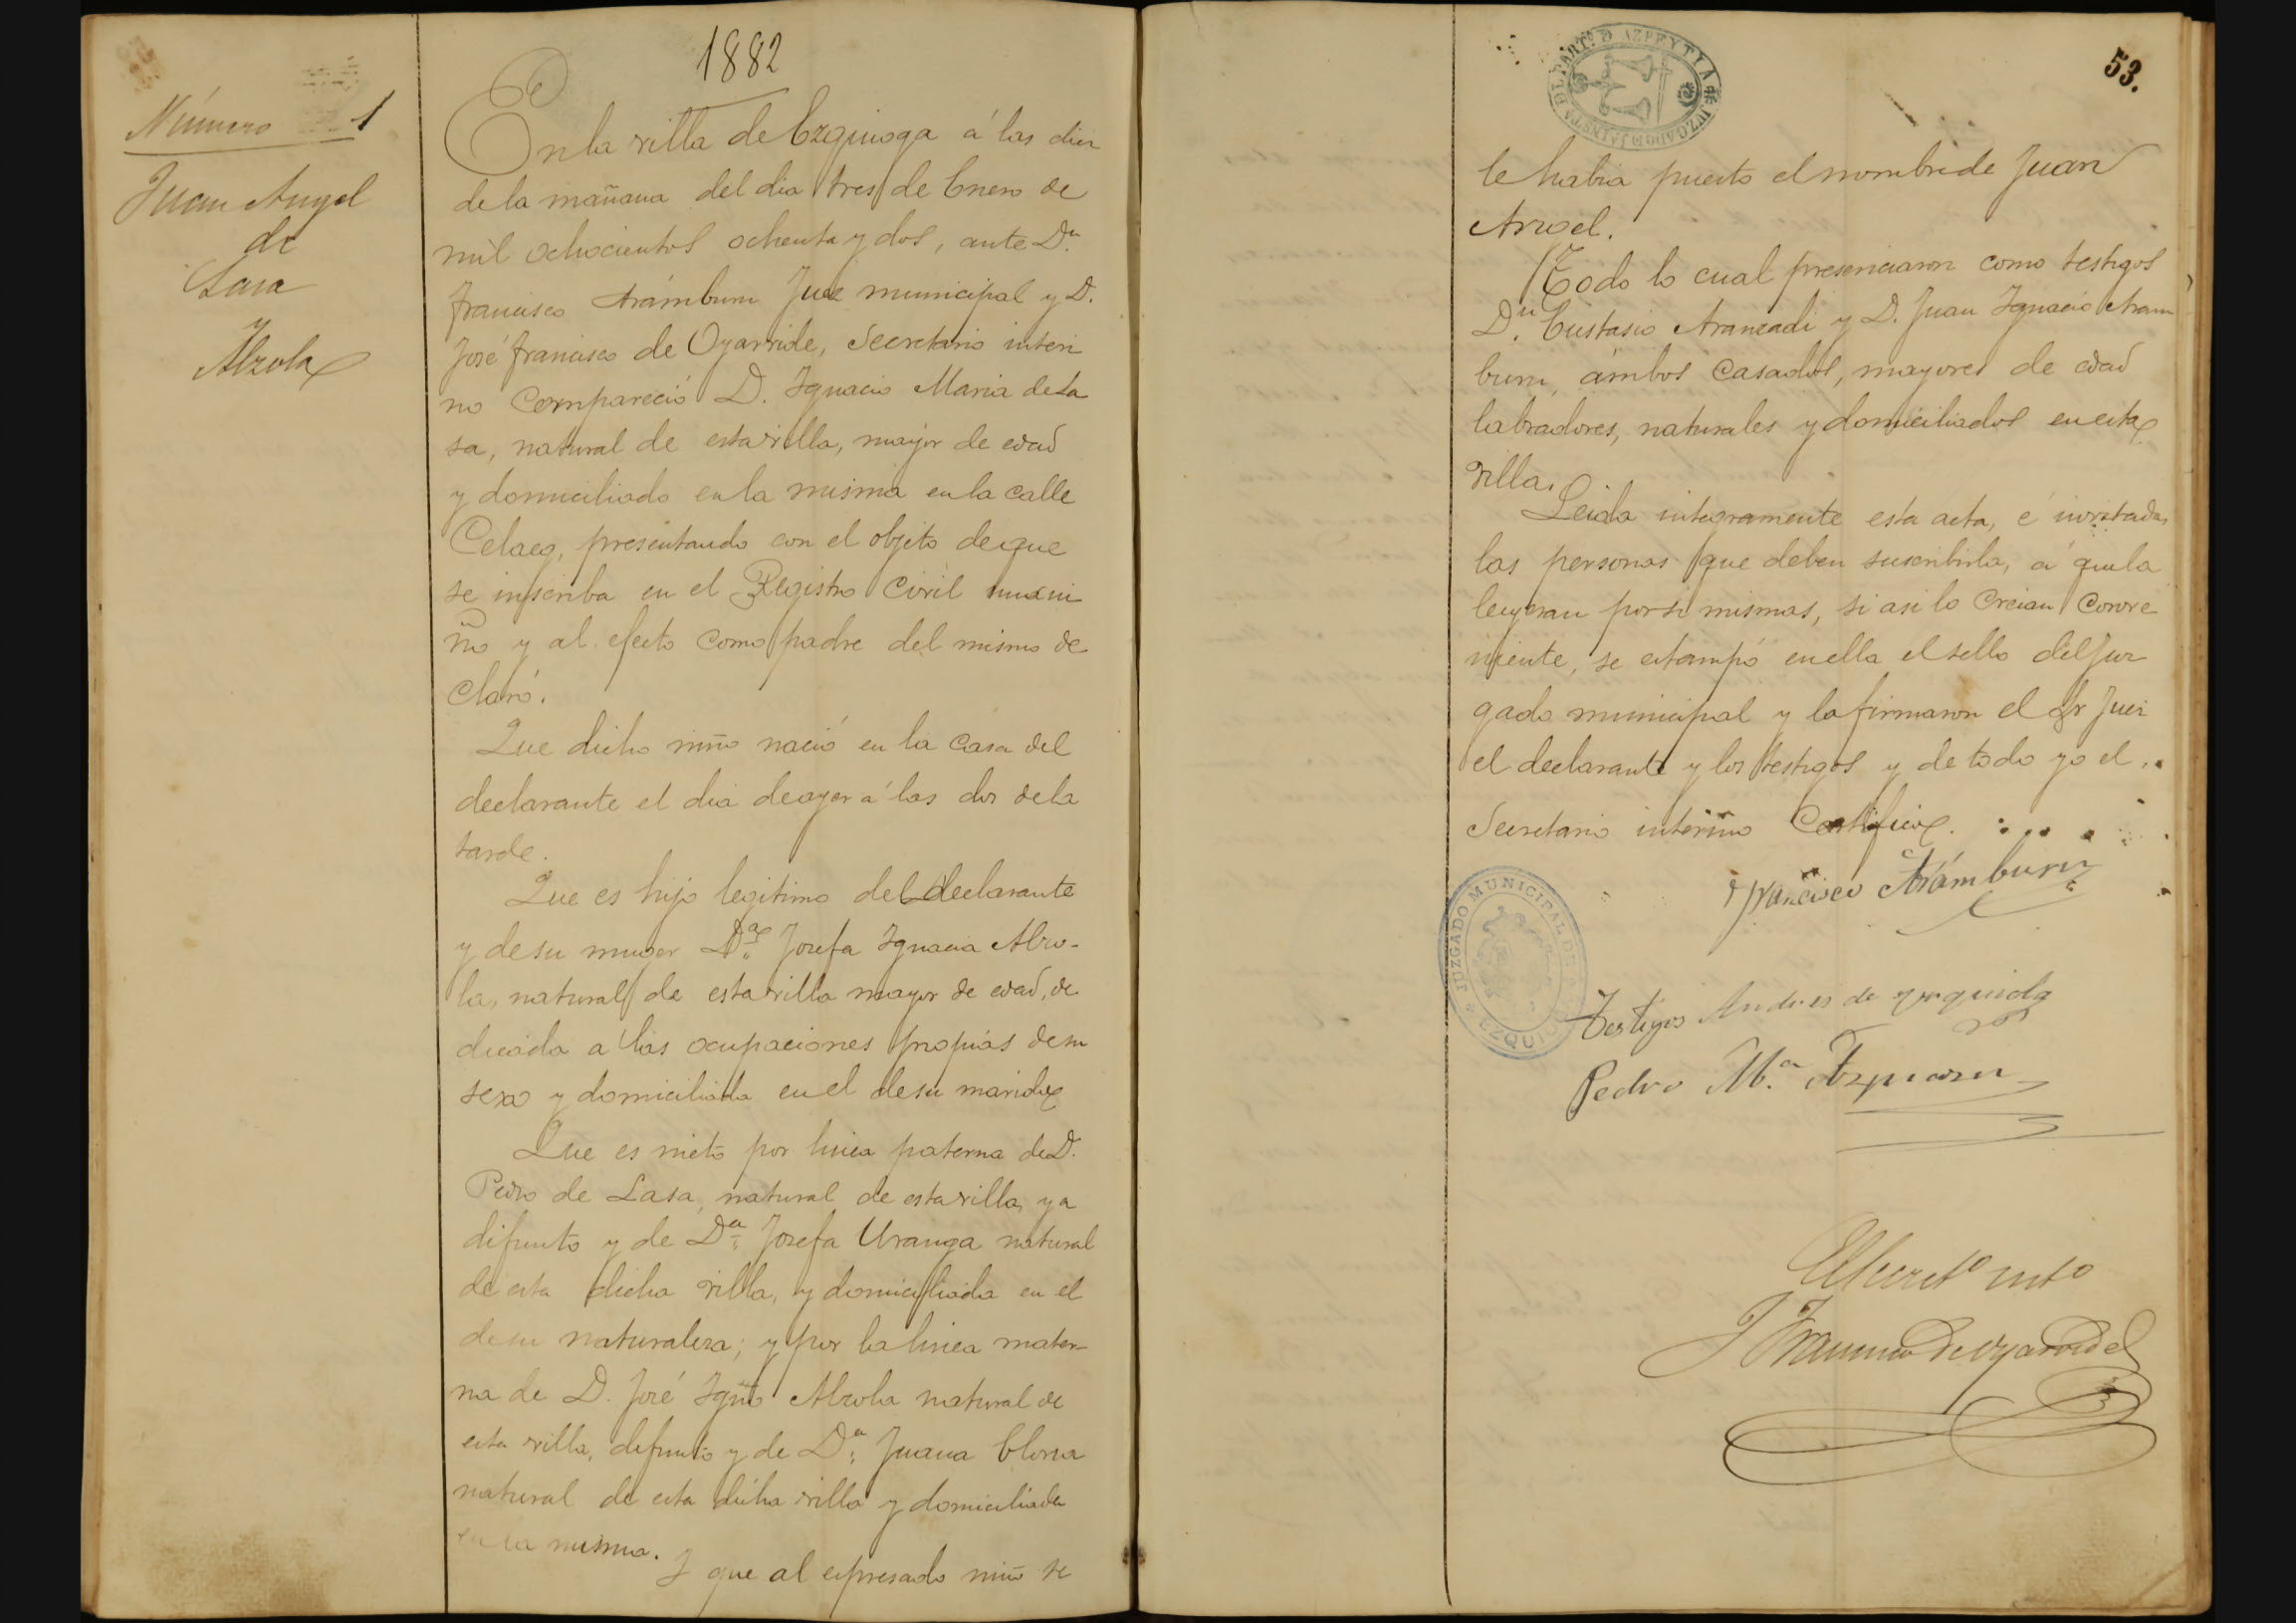 1882
Número 1
Juan Angel
de
Lasa
y
Alzola
En la villa de Ezquioga á las diez
de la mañana del dia tres de Enero de
mil ochocientos ochenta y dos, ante Dn.
Francisco Arámburu Juez municipal y D.
José Francisco de Oyarvide, Secretario interi
no compareció D. Ignacio Maria de La
sa, natural de esta villa, mayor de edad
y domiciliado en la misma en la calle
presentando con el objeto de que
se inscriba en el Registro Civil un ni
ño y al efecto como padre del mismo de
claró.
Que dicho niño nació en la casa del
declarante el dia de ayer á las dos de la
tarde.
Que es hijo legitimo del declarante
y de su muger Da. Josefa Ignacia Alzo-
la, natural de esta villa mayor de edad, de
dicada a las ocupaciones propias de su
sexo y domiciliada en el de su marido
Que es nieto por linea paterna de D.
Pedro de Lasa, natural de esta villa, ya
difunto y de Da. Josefa Uranga natural
de esta dicha villa, y domiciliada en el
de su naturaleza; y por la linea mater-
na de D. José Ignº Alzola natural de
esta villa, difunto y de Da. Juana
natural de esta dicha villa y domiciliada
en la misma.
Y que al espresado niño se
53.
JUZGADO DE 1A INSTA DEL PARTO D AZPEYTIA
le habia puesto el nombre de Juan
Angel.
Todo lo cual presenciaron como testigos
Dn. Eustasio Aranzadi y D. Juan Ignacio Aram
buru, ámbos casados, mayores de edad
labradores, naturales y domiciliados en esta
villa.
Leida integramente esta acta, é invitadas
las personas que deben suscribirla, á que la
leyeran por si mismas, si asi lo creian conve
niente, se estampó en ella el sello del Juz
gado municipal y la firmaron el Sr Juez
el declarante y los testigos y de todo yo el
Secretario interino Certifico.
Francisco Arámburu
JUZGADO MUNICIPAL DE EZQUIOGA
Testigos Andres de
Pedro M.a
El Secretº intº
J Francisco de Oyarvide